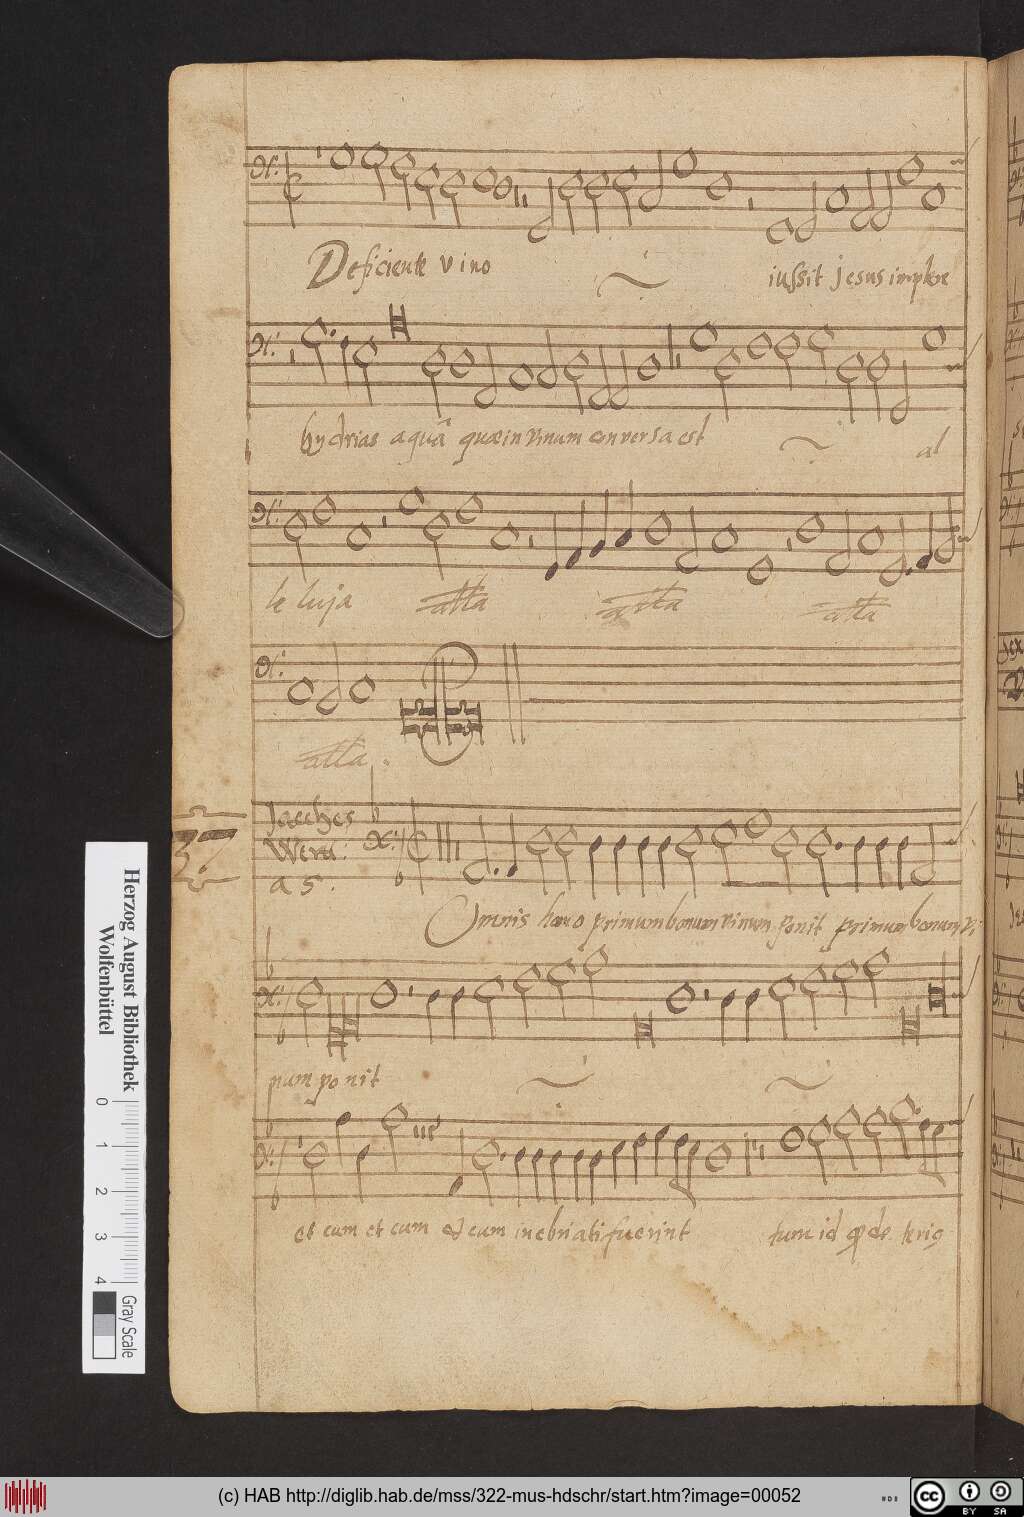 Deficiente vino iussit Jesus implere
hydrias aquâ quæ in vinum conversa est al
le luja alla alla alla
alla.
Jacches
Wert:
a 5.
37
Omnis homo primum bonum vinum ponit primum bonum vi
num ponit
et cum et cum et cum inebriati fuerint tum id qd de terig
Herzog August Bibliothek
Wolfenbüttel
0 1 2 3 4
Gray Scale
(c) HAB http://diglib.hab.de/mss/322-mus-hdschr/start.htm?image=00052
cc BY SA